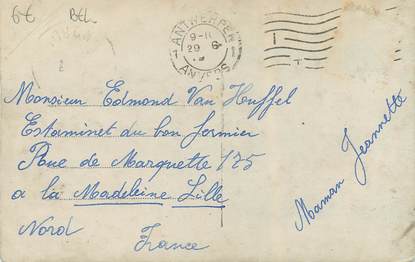 6€ BEL
ANTWERPEN
1 1
9-11
29
ANVERS
Monsieur Edmond Van Heuffel
Estaminet du bon fermier
Rue de Marquette 175
a la Madeleine Lille
Nord
France
Maman Jeannette